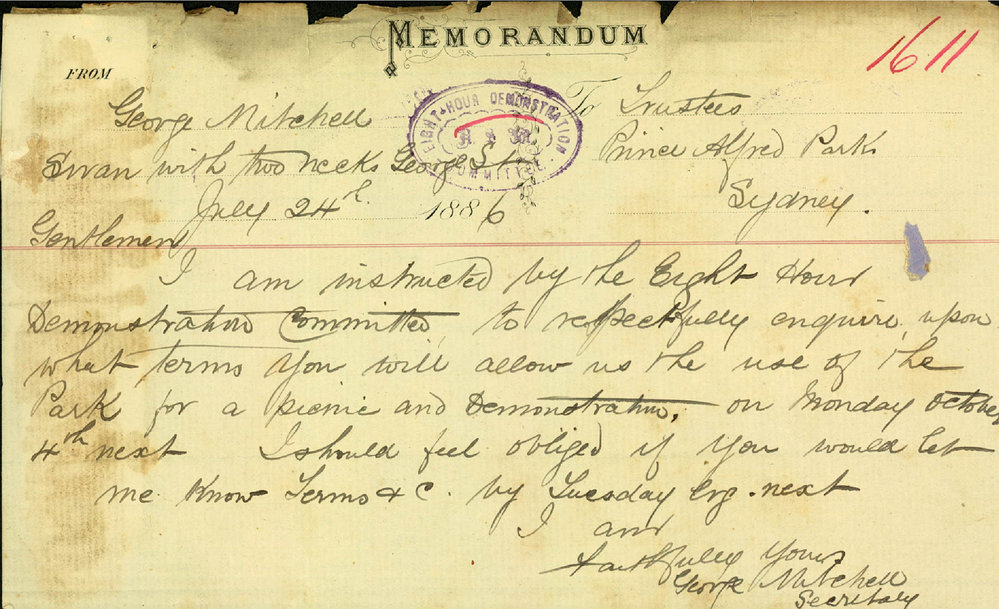 MEMORANDUM
1611
FROM
George Mitchell
Swan with two necks George St
July 24th 1886
EIGHT-HOUR DEMONSTRATION
COMMITTEE
To Trustees
Prince Alfred Park
Sydney.
Gentlemen
I am instructed by the Eight Hour
Demonstration Committee to respectfully enquire upon
what terms you will allow us the use of the
Park for a picnic and Demonstration, on Monday October
4th next I should feel obliged if you would let
me know Terms & C. by Tuesday Evg. next
I am
Faithfully Yours
George Mitchell
Secretary